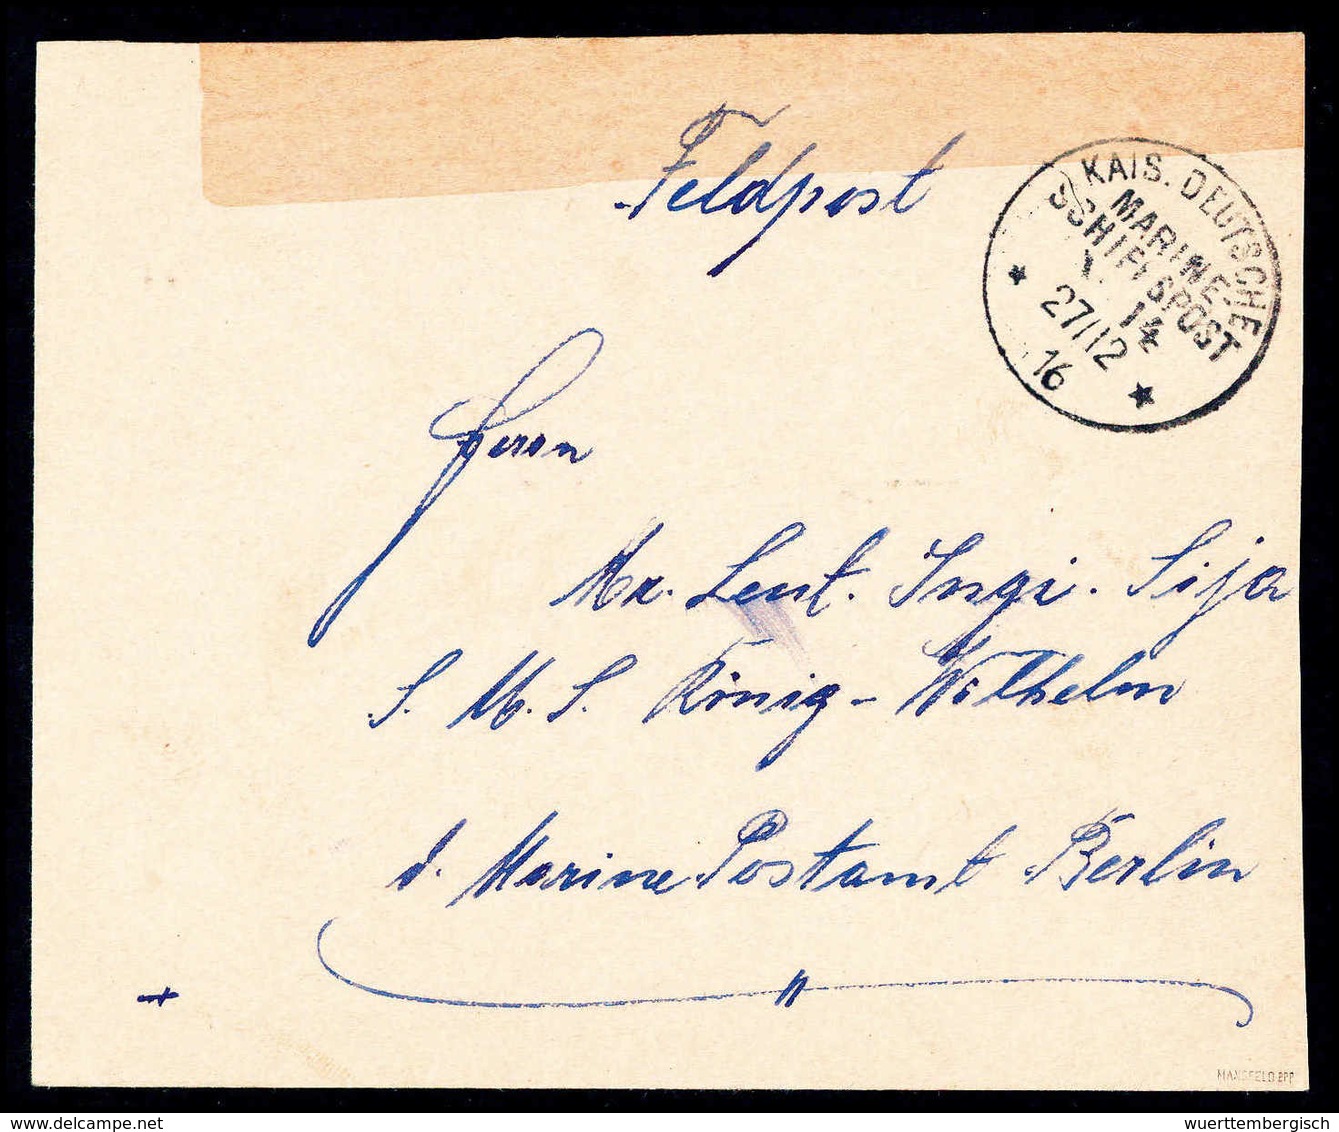 Feldpost
KAIS. DEUTSCHE
MARINE-
SCHIFFSPOST
14
27/12
16
Herrn
Mar. Lent. Ingi. Sija
S. M. S. König-Wilhelm
d. Marine Postamt Berlin
MANSFELD BPP
www.delcampe.net
wuerttembergisch